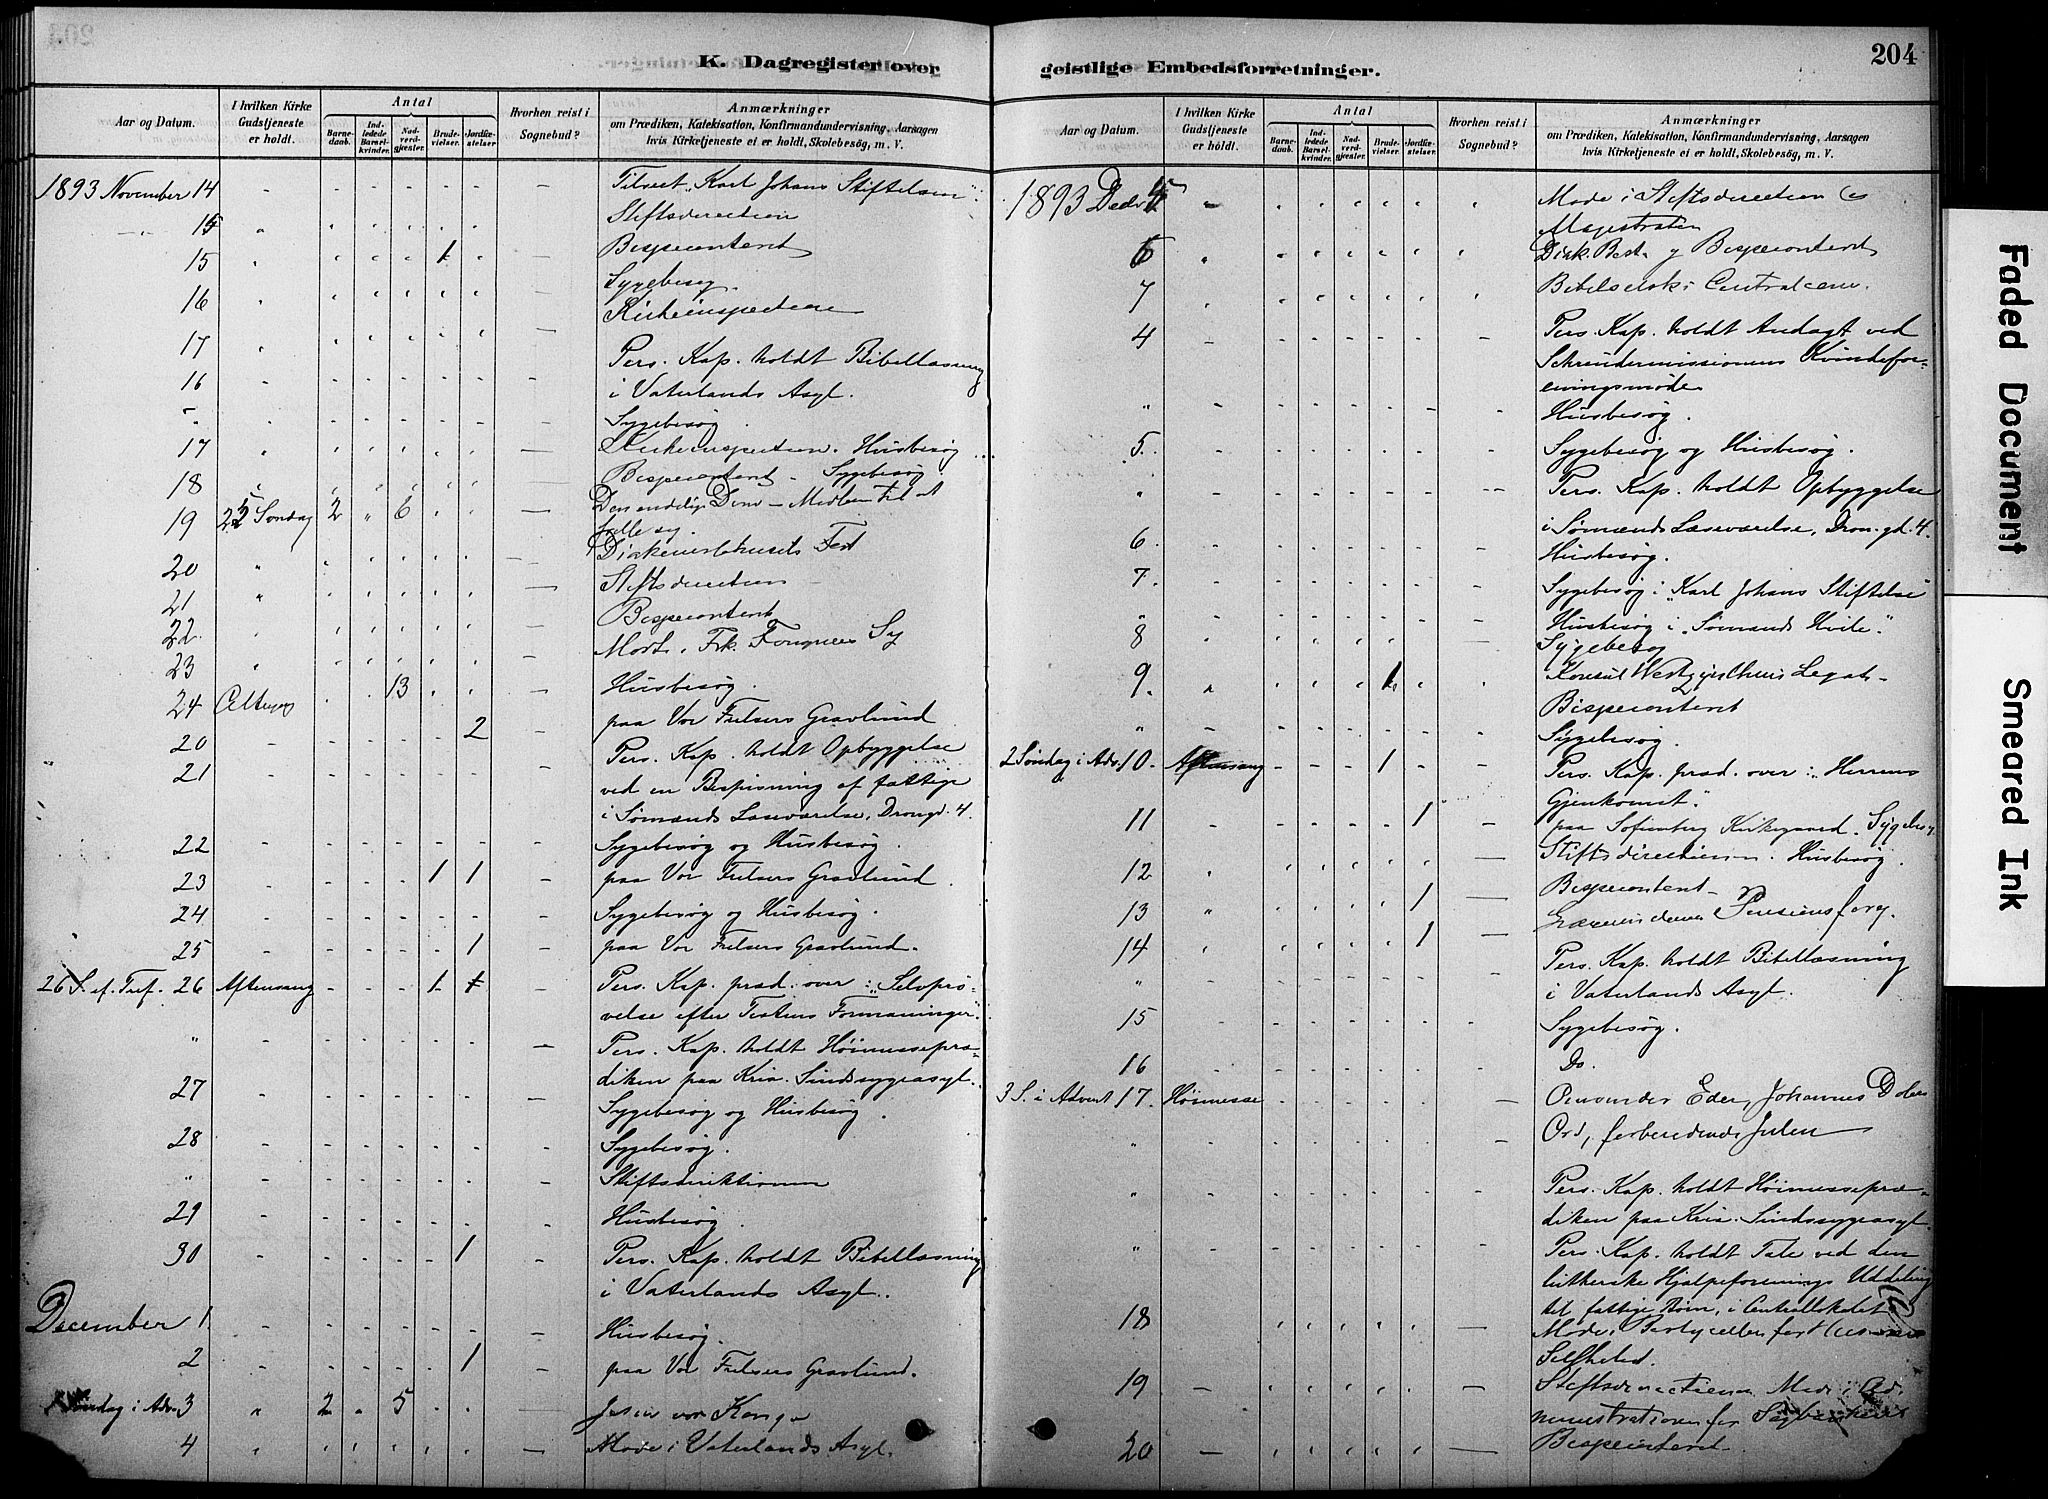 K. Dagregister over geistlige Embedsforretninger.
204
Aar og Datum.
I hvilken Kirke Gudstjeneste er holdt.
Antal
Barnedaab.
Indledede Barselkvinder.
Nadverdgjester.
Brudevielser.
Jordfæstelser
Hvorhen reist i Sognebud?
Anmærkninger
om Prædiken, Katekisation, Konfirmandundervisning, Aarsagen
hvis Kirketjeneste ei er holdt, Skolebesög, m. V.
1893 November 14 Tilseet "Karl Johans Stiftelsen"
15 Stiftsdirectien
15 1 Bispecontoret
16 Sygebesøg.
17 Kirkeinspectien
16 Pers. Kap. holdt Bibellæsning
i Vaterlands Asyl.
Sygebesøg
17 Kirkeinspectien. Husbesøg
18 Bispecontoret - Sygebesøg
19 Søndag 2 6 Den endelige Dom - Mellem til at
20 Fest
21 Stiftsdirectien
22 Bispecontoret
23 Frk.
24 13 Husbesøg.
20 2 paa Vor Frelsers Gravlund
21 Pers. Kap. holdt Opbyggelse
ved en Bespisning af fattige
i Sømænds Læseværelse, Drongd. 4.
22 Sygebesøg og Husbesøg.
23 1 1 paa Vor Frelsers Gravlund.
24 Sygebesøg og Husbesøg.
25 1 paa Vor Frelsers Gravlund.
26 S. ef. Tref. 26 Aftensang 1 1 Pers. Kap. præd. over: "Selvprø-
velse efter Textens Formaninger".
" Pers. Kap. holdt Höimessepræ-
diken paa Kria. Sindssygeasyl.
27 Sygebesøg og Husbesøg.
28 Sygebesøg.
" Stiftsdirektionen
29 Husbesøg.
30 1 Pers. Kap. holdt Bibellæsning
i Vaterlands Asyl.
December 1. Husbesøg.
2 1 paa Vor Frelsers Gravlund.
1 Søndag i Adv. 3 2 5 Jesus vor Konge
4 Møde i Vaterlands Asyl.
Aar og Datum.
I hvilken Kirke Gudstjeneste er holdt.
Antal
Barnedaab.
Indledede Barselkvinder.
Nadverdgjester.
Brudevielser.
Jordfæstelser.
Hvorhen reist i Sognebud?
Anmærkninger
om Prædiken, Katekisation, Konfirmandundervisning, Aarsagen
hvis Kirketjeneste ei er holdt, Skolebesög, m. V.
1893 Decbr 5 Møde i Stiftsdirectien og
Magistraten
6 Bispecontoret
7 Bibelselsk.
4 Pers. Kap. holdt Andagt ved
Schreudermissionens Kvindefor-
eningsmøde
" Husbesøg.
5. Sygebesøg og Husbesøg.
" Pers. Kap. holdt Opbyggelse
i Sømænds Læseværelse, Dron.gd. 4.
6 Husbesøg.
7. Sygebesøg i "Karl Johans Stiftelse"
" Husbesøg i "Sømands Hvile".
8 Sygebesøg
9. 1 Konsul Legat
Bispecontoret
" Sygebesøg.
2 Søndag i Adv. 10. Aftensang 1 Pers. Kap. præd. over: "Herrens
Gjenkomst."
11 1 paa Sofienberg Kirkegaard. Sygebesøg
12 Stiftsdirectienen. Husbesøg.
13 1 Bispecontoret
14 1 Pensionsforg.
" Pers. Kap. holdt Bibellæsning
i Vaterlands Asyl.
15 Sygebesøg.
16 Do.
3 S. i Advent 17. Höimesse Omvender Eder, Johannes Døbers
Ord, forberedende Julen
" Pers. Kap. holdt Höimessepræ-
diken paa Kria. Sindssygeasyl.
" Pers. Kap. holdt Tale ved den
lutherske Hjælpeforenings Uddeling
til fattige Børn, i Centrallokalet
18 Møde i
19 Stiftsdirectienen Møde i Ad-
ministrationen for
20 Bispecontoret
Faded Document
Smeared Ink